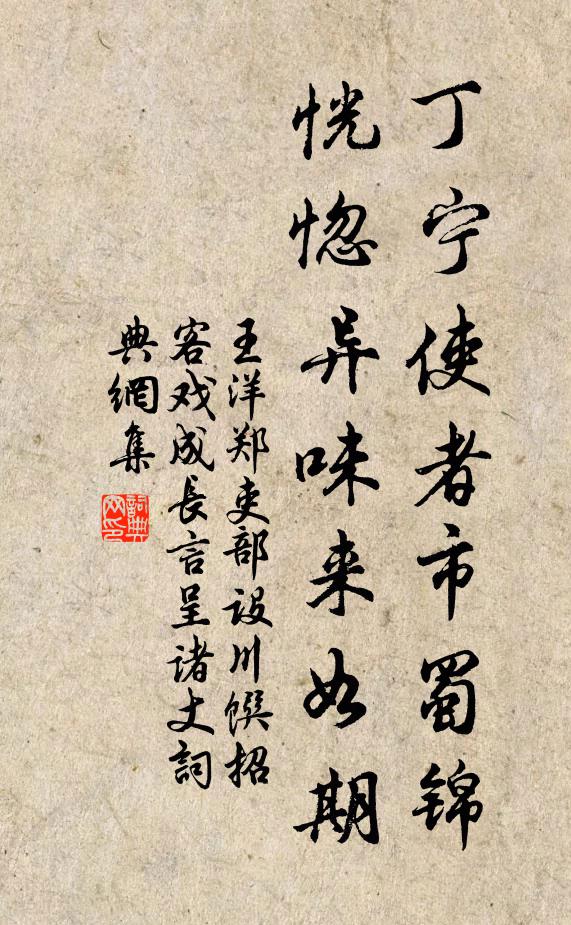 丁宁使者市蜀锦
恍惚异味来如期
王洋郑吏部设川馔招
客戏成長言呈诸丈詞
典網集
詞典
网印